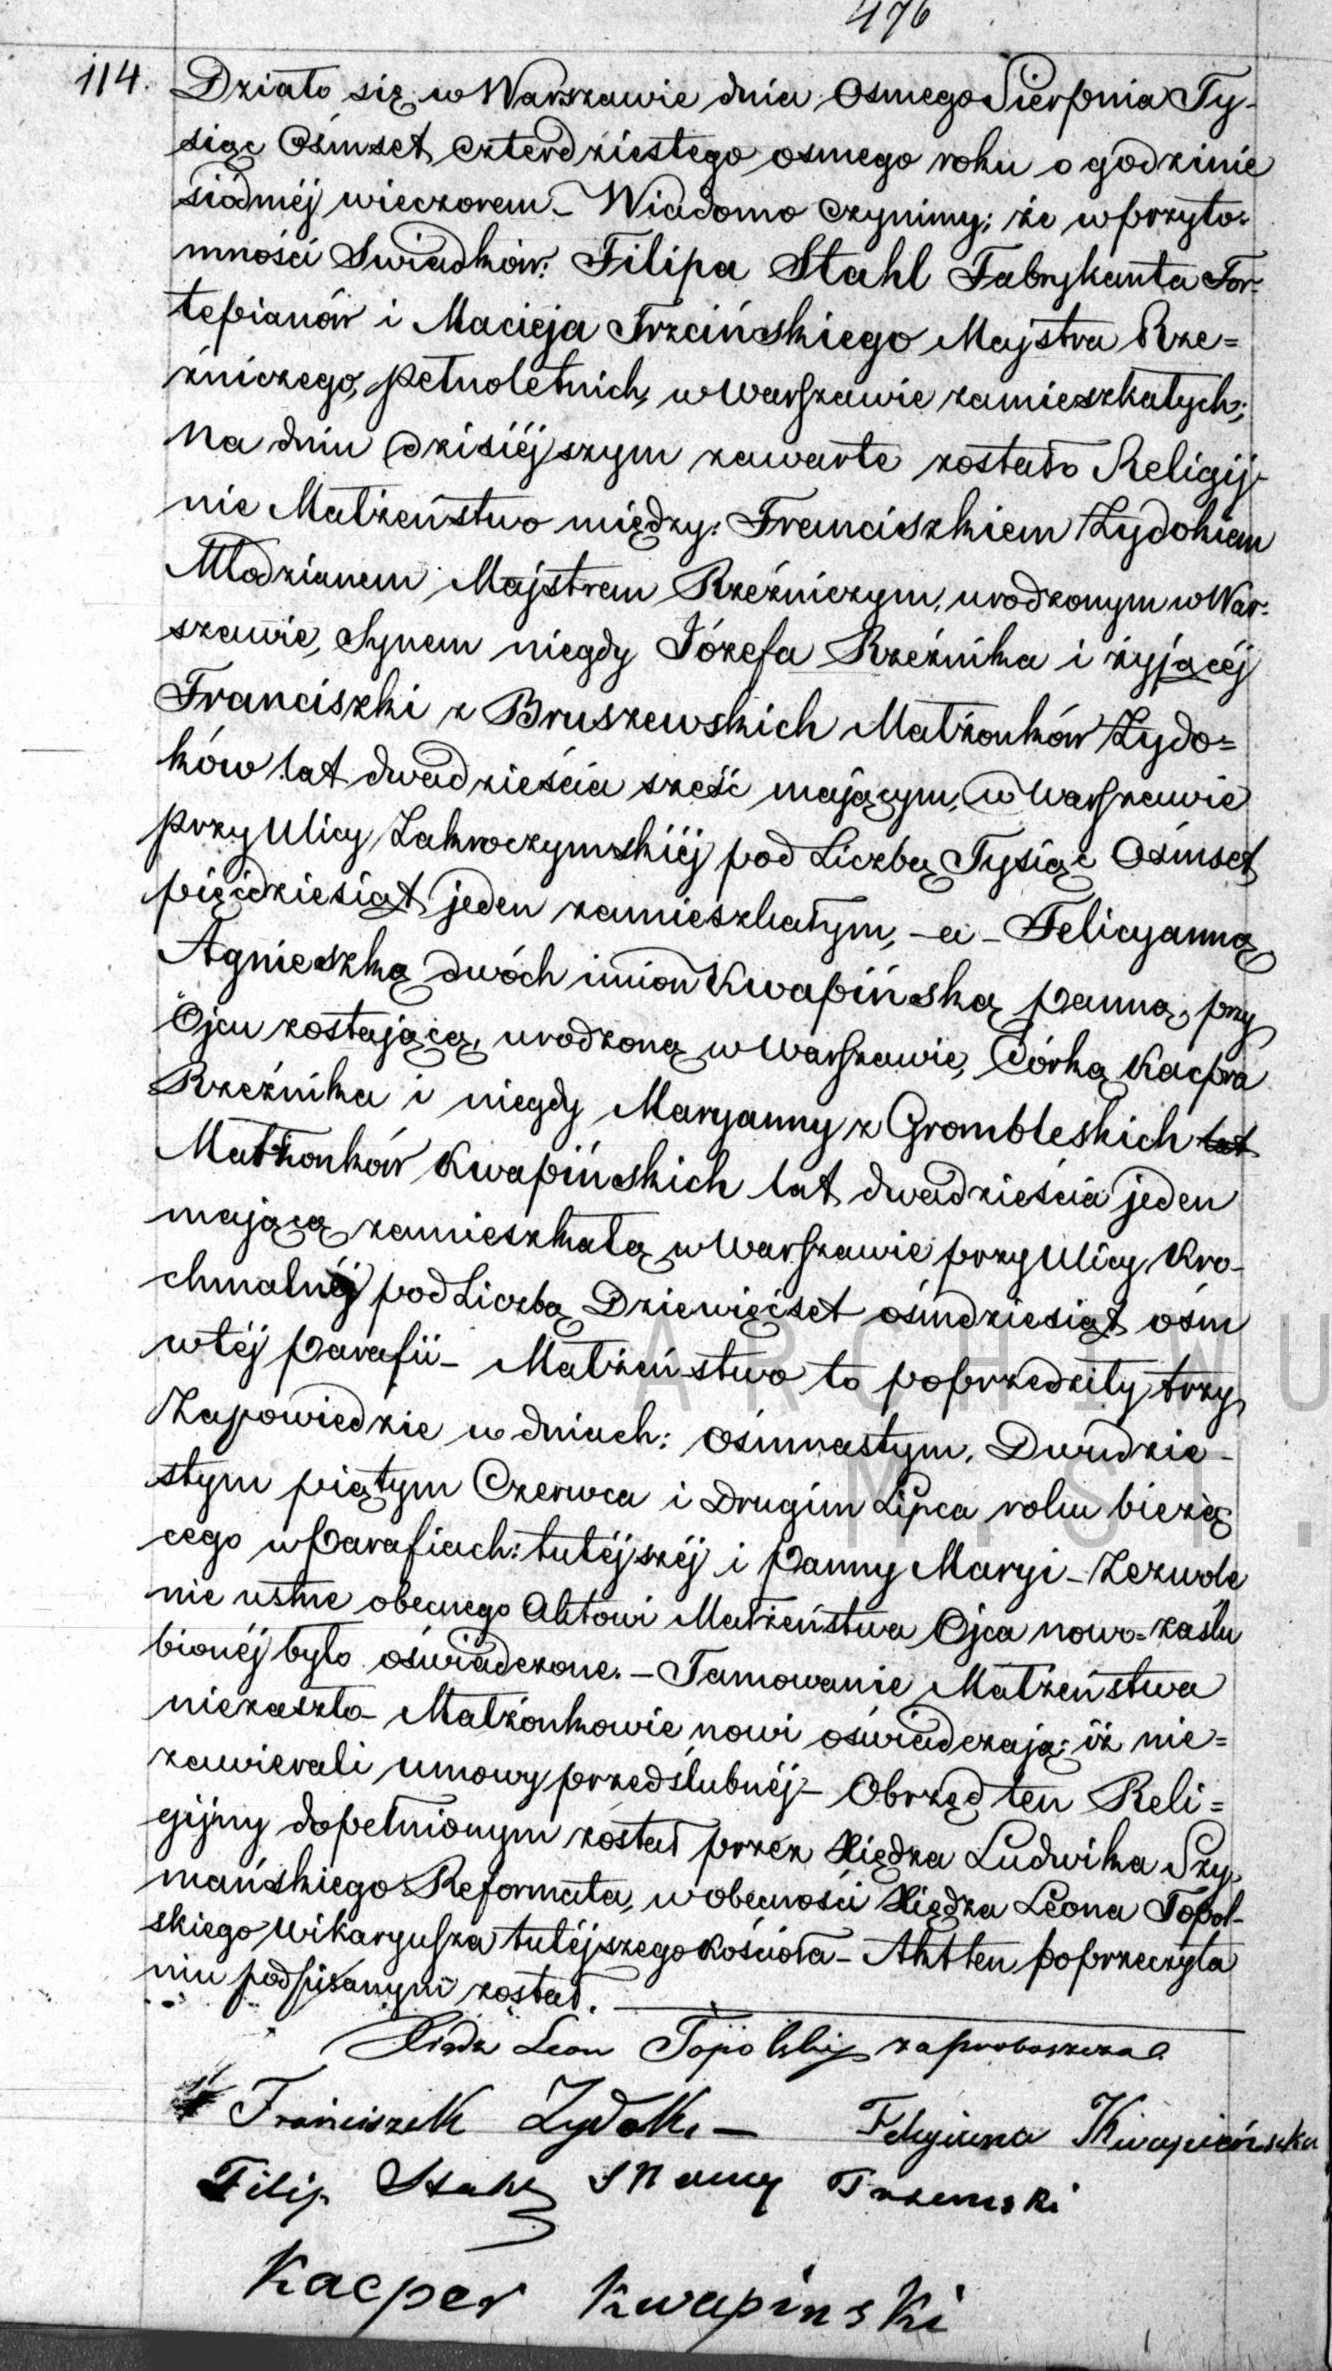 476
114. Działo się w Warszawie dnia Osmego Sierpnia Ty-
siąc Ośmset czterdziestego osmego roku o godzinie
siódméj wieczorem. – Wiadomo czynimy; że w przyto=
mności Swiadków: Filipa Stahl Fabrykanta For-
tepianów i Macieja Trzcińskiego Majstra Rze=
źniczego, pełnoletnich, w Warszawie zamieszkałych;
Na dniu dzisiéjszym zawarte zostało Religij-
nie Małżeństwo między: Franciszkiem Zydokiem
Młodzianem Majstrem Rzeźniczym, urodzonym w War-
szawie, Synem niegdy Józefa Rzeźnika i żyjącéj
Franciszki z Bruszewskich Małżonków Zydo=
ków lat dwadzieścia sześć mającym, w Warszawie
przy Ulicy Zakroczymskiéj pod Liczbą Tysiąc Ośmset
pięćdziesiąt jeden zamieszkałym, – a – Felicyanną
Agnieszką dwóch imion Kwapińską panną, przy
Ojcu zostającą, urodzoną w Warszawie, Córką Kacpra
Rzeźnika i niegdy Maryanny z Grombleskich lat
Małżonków Kwapińskich lat dwadzieścia jeden
mającą zamieszkałą w Warszawie przy Ulicy Kro-
chmalnéj pod Liczbą Dziewięćset ośmdziesiąt ośm
w téj parafii – Małżeństwo to poprzedziły trzy
Zapowiedzie w dniach: ośmnastym, Dwudzie-
stym piątym Czerwca i Drugim Lipca roku bieżą
cego w Parafiach: tutéjszéj i Panny Maryi – Zezwole
nie ustne obecnego Aktowi Małżeństwa Ojca nowo=zaślu
bionéj było oświadczone. – Tamowanie Małżeństwa
niezaszło – Małżonkowie nowi oświadczają; iż nie=
zawierali umowy przedślubnéj – Obrzęd ten Reli=
gijny dopełnionym został przez Xiędza Ludwika Szy-
mańskiego Reformata, w obecności Xiędza Leona Topol-
skiego Wikaryusza tutéjszego Kościoła – Akt ten po przeczyta
niu podpisanym został.
Xiądz Leon Topolski za proboszcza
Franciszek Zydok – Felicyanna Kwapieńska
Filip Stahl
Kacper Kwapinski
ARCHIWU
M.ST.